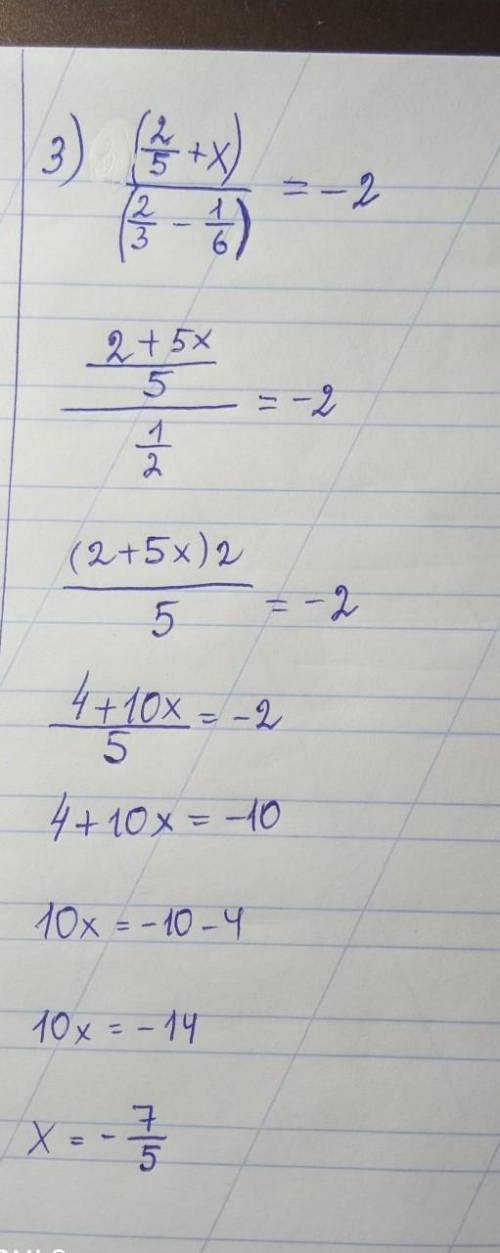 3) (2/5 + x) / (2/3 - 1/6) = -2
((2 + 5x)/5) / (1/2) = -2
(2+5x)2 / 5 = -2
(4+10x)/5 = -2
4+10x = -10
10x = -10-4
10x = -14
x = -7/5